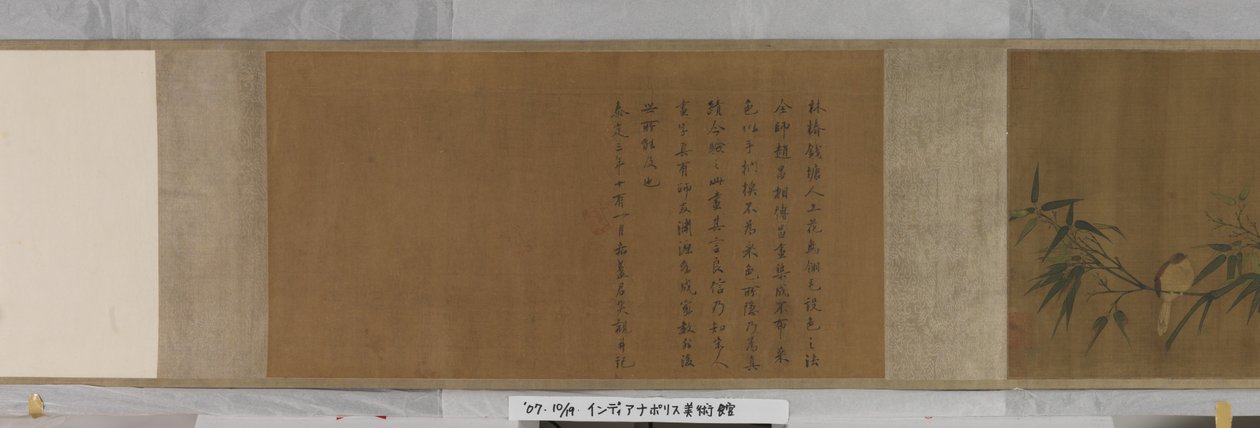 林椿錢塘人工花鳥翎毛設色之法
全師趙昌相傳昌畫染成不布采
色以手捫摸不為采色所隱乃為真
蹟今驗之此畫其言良信乃知宋人
畫學具有師友淵源各成家數非後
世所能及也
泰定三年十有一月 觀并記
'07.10/19. インディアナポリス美術館